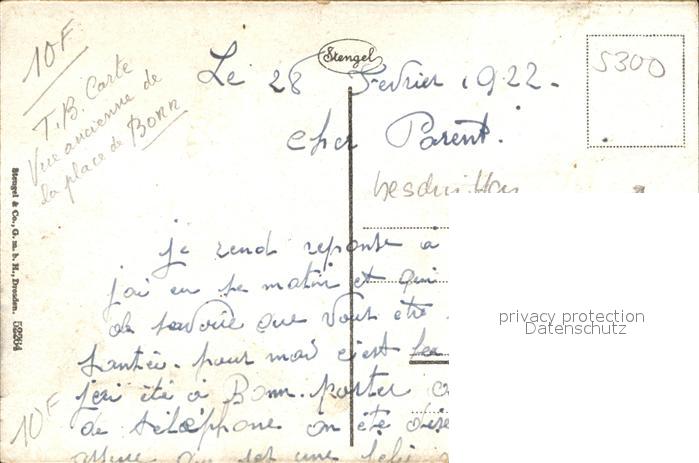 10F
Stengel
Le 28 Fevrier 1922.
5300
T.B. Carte
Vue ancienne de
la place de Bonn
Cher Parent.
je rend reponse a
j'ai eu se matin et qui
de savoir que vous ete
santée. pour moi c'est
j'ai été a Bonn. porter
de téléphone on été
assure que set une
10F
Stengel & Co., G. m. b. H., Dresden. 52264
privacy protection
Datenschutz